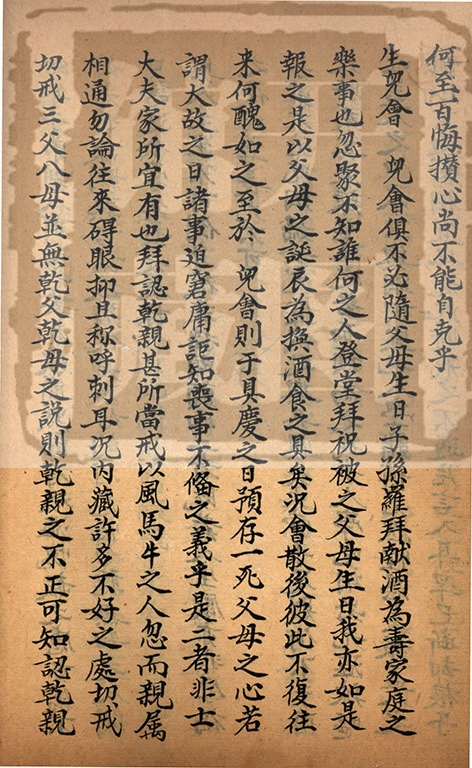 何至百悔攅心尚不能自克乎
生㒵會 㒵會俱不必隨父母生日子孫羅拜献酒為壽家庭之
樂事也忽聚不知誰何之人登堂拜祝被之父母生日我亦如是
報之是以父母之誕辰為換酒食之具矣况會散後彼此不復往
来何醜如之至於 㒵會則于具慶之日預存一死父母之心若
謂大故之日諸事迫窘庸詎知喪事不俻之義乎是二者非士
大夫家所宜有也拜認乾親甚所當戒以風馬牛之人忽而親属
相通勿論往來碍眼抑且称呼刺耳况内藏許多不好之處切戒
切戒三父八母並無乾父乾母之説則乾親之不正可知認乾親